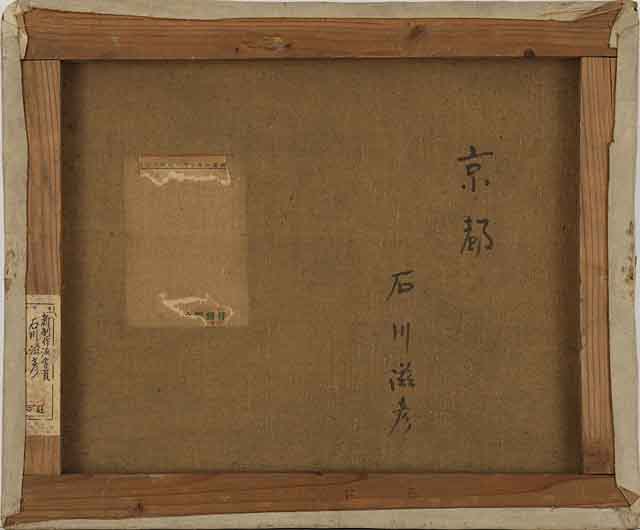 京都
石川滋彦
新制作派会員
石川滋彦